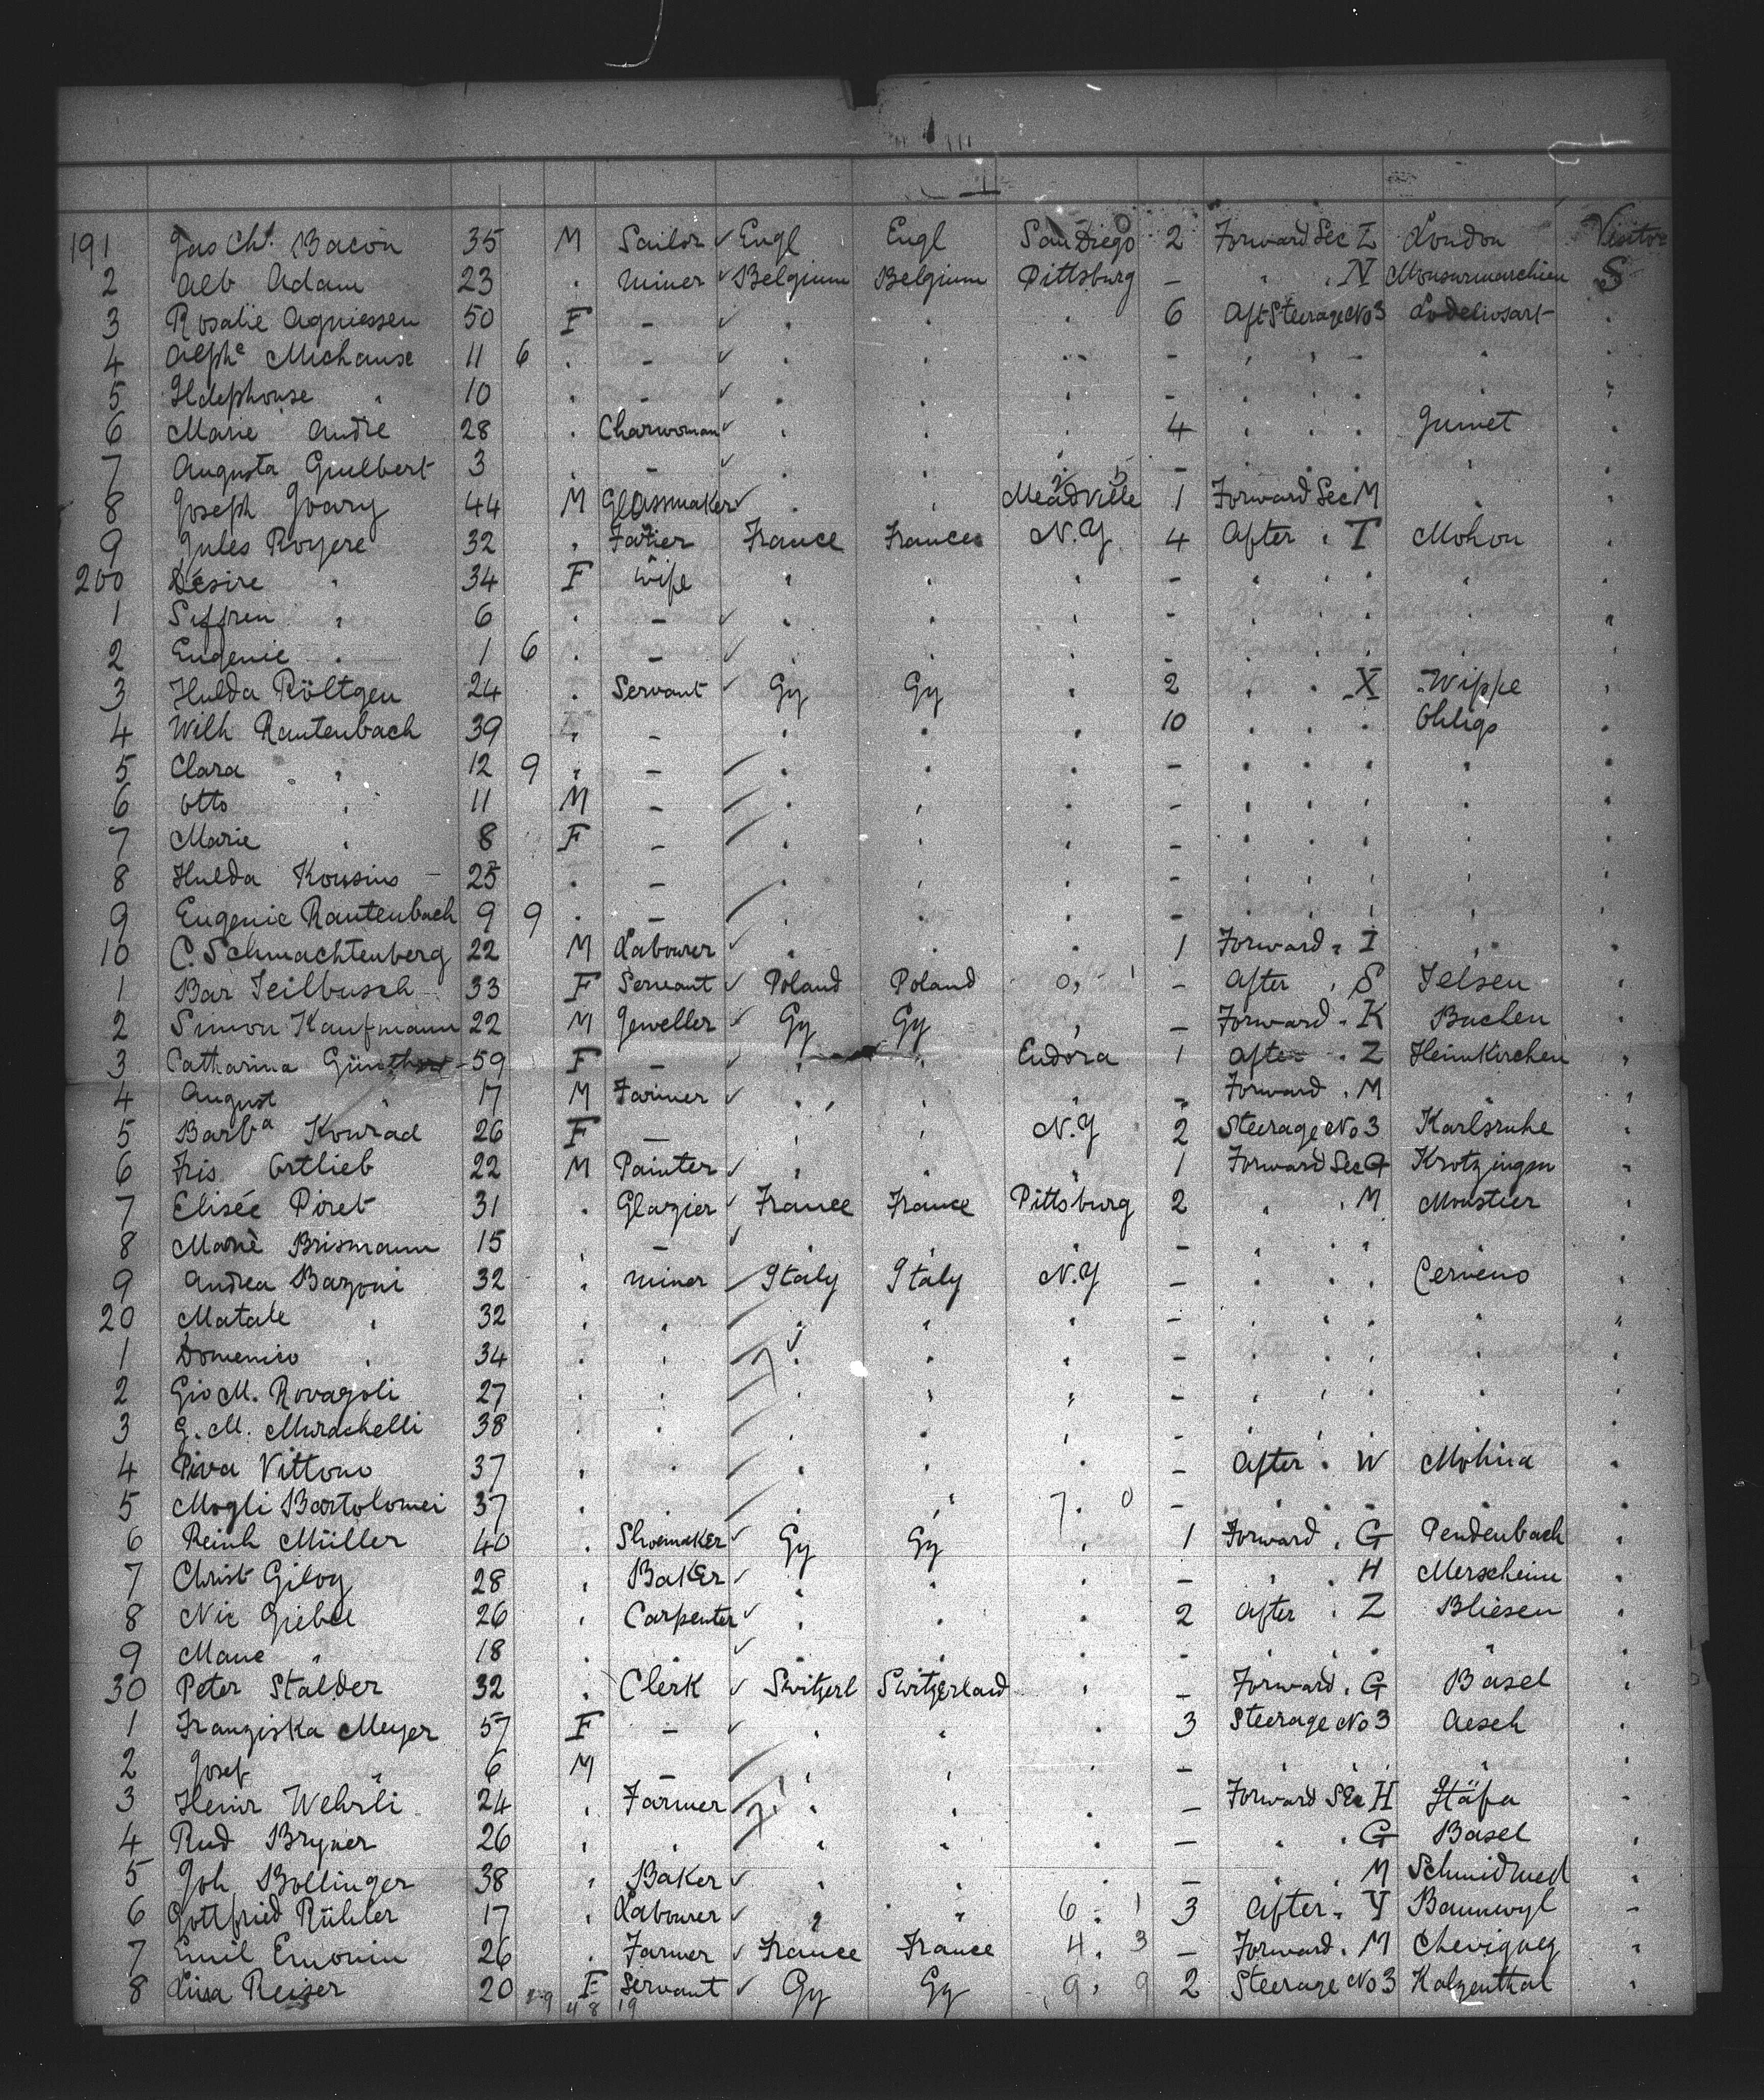 191 Jas Chs. Bacon 35 M Sailor ✓ Engl Engl San Diego 2 Forward Sec Z London Visitor
2 Alb Adam 23 . Miner ✓ Belgium Belgium Pittsburg - . . N Monsurmarchien S
3 Rosalie Agniessen 50 F - ✓ . . . 6 Aft Steerage No 3 Lodelinsart .
4 Alphe Michause 11 6 . - ✓ . . . - . . - . .
5 Ildephouse . 10 . - ✓ . . . - . . . . .
6 Marie André 28 . Charwoman ✓ . . . 4 . . . Jumet .
7 Augusta Guilbert 3 . - ✓ . . . - . . . . .
8 Joseph Goary 44 M Glassmaker ✓ . . Meadville 1 Forward Sec M . .
9 Jules Royere 32 . France France N.Y. 4 After . T Mohon .
200 Désire . 34 F Wife . . . - . . . . .
1 Siffren . 6 . - ✓ . . . - . . . . .
2 Eugenie . 1 6 . - ✓ . . . - . . . . .
3 Hulda Röltgen 24 . Servant ✓ Gy Gy . 2 . . X Wippe .
4 Wilh Rautenbach 39 . - . . . 10 . . . Ohligs .
5 Clara . 12 9 . - / . . . - . . . . .
6 Otto . 11 M - / . . . - . . . . .
7 Marie . 8 F - / . . . - . . . . .
8 Hulda Kousins - 25 . - . . . - . . . . .
9 Eugenie Rautenbach 9 9 . - / . . . - . . . . .
10 C. Schmachtenberg 22 M Labourer ✓ . . . 1 Forward . I . .
1 Bar Teilbusch 33 F Servant ✓ Poland Poland 0, 1 - After . S Jelsen .
2 Simon Kaufmann 22 M Jeweller ✓ Gy Gy , - Forward . K Buchen .
3 Catharina Günthert - 59 F - ✓ . . Eudora 1 After . Z Heimkirchen .
4 August . 17 M Farmer ✓ . . . - Forward . M . .
5 Barba Konrad 26 F - . . N.Y 2 Steerage No 3 Karlsruhe .
6 Fris. Ortlieb 22 M Painter ✓ . . . 1 Forward Sec G Krotzingen .
7 Elisée Piret 31 . Glazier ✓ France France Pittsburg 2 . . M Moustier .
8 Marie Brismann 15 . - ✓ . . . - . . . . .
9 Andrea Bazoni 32 . Miner / Italy Italy N.Y - . . . Cerveno .
20 Matale . 32 . . / . . . - . . . . .
1 Domenico . 34 . . / . . . - . . . . .
2 Gio M. Rovagoli 27 . . / . . . - . . . . .
3 G. M. Murachelli 38 . . / . . . - . . . . .
4 Piva Vittorio 37 . . / . . . - After . W Molina .
5 Mogli Bartolomei 37 . . / . . 7. 0 - . . . . .
6 Reinh Müller 40 . Shoemaker ✓ Gy Gy . 1 Forward . G Pendenbach .
7 Christ Giloy 28 . Baker ✓ . . . - . . H Merscheim .
8 Nic Giebel 26 . Carpenter ✓ . . . 2 After . Z Bliesen .
9 Marie . 18 . . ✓ . . . - . . . . .
30 Peter Stalder 32 . Clerk ✓ Switzerl Switzerland . - Forward . G Basel .
1 Franziska Meyer 57 F - ✓ . . . 3 Steerage No 3 Aesch .
2 Josef . 6 M - / . . . - . . . . .
3 Heinr Wehrli 24 . Farmer / . . . - Forward Sec H Stäfa .
4 Rud Bryner 26 . . / . . . - . . G Basel .
5 Joh Bollinger 38 . Baker ✓ . . . - . . M .
6 Gottfried Rühler 17 . Labourer ✓ . . 6. 1 3 After . Y Baumwyl -
7 Emil Emonin 26 . Farmer ✓ France France 4. 3 - Forward . M Chevigney .
8 Luisa Reiser 20 F Servant ✓ Gy Gy 9. 9 2 Steerage No 3 Kalzenthal .
48 19